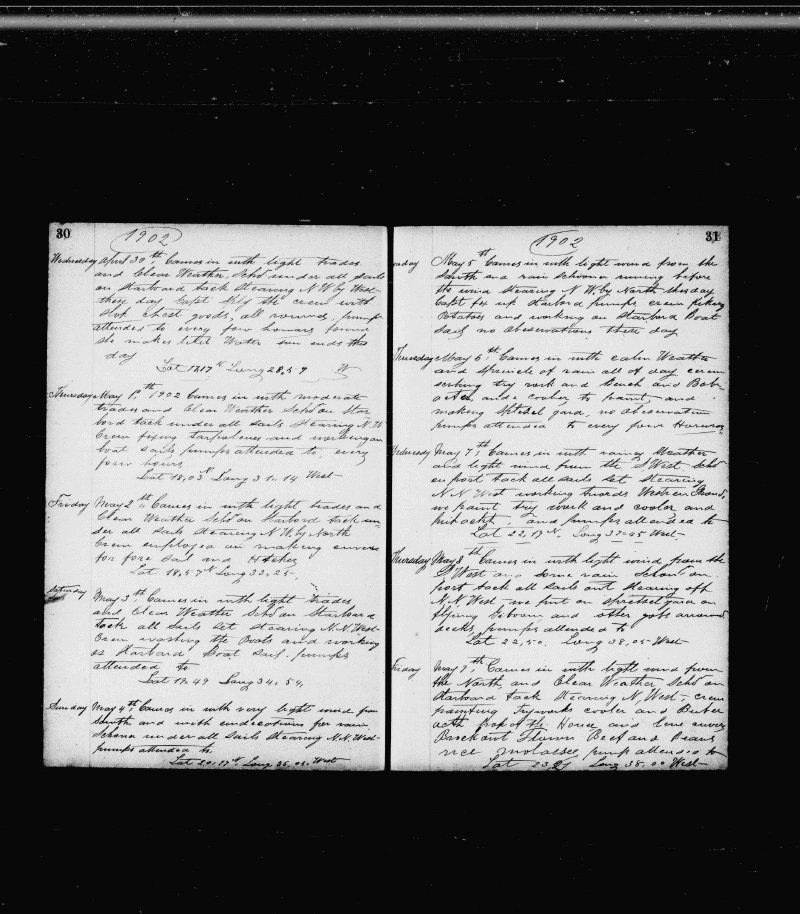 30
1902
Wednesday April 30th Comes in with light trades
and Clear Weather, Schr under all sails
on Starboard tack Stearing N.W. by West
they day Capt the crew with
Slop Chest goods, all pump
attended to every four houars
She makes Water soo ends the
day
Lat 17.17 N Long 28.59 W
Thursday May 1th 1902 Comes in with moderate
trades and Clear Weather Schr on Star
bord tack under all Sails Stearing N.W
Crew and on
boat sails pumps attended to, every
four hours
Lat 18,03 N Long 31.14 West
Friday May 2th Comes in with light trades and
Clear Weather Schr on Starbord tack un
der all Sails Stearing N.W. by North
Crew employed on making
for fore Sail and
Lat 18,57 N Long 33.25
Saturday
May 3th Comes in with light trades
and Clear Weather Schr on Starboard
tack all Sails Set Stearing N.N. West
Crew washing the Boats and working
on Starbord Boat Sail. pumps
attended to
Lat 19.49 Long 34.54,
Sunday May 4th Comes in with very light wind from
South and with endecations for rain
Schona under all Sails Stearing N.N. West
pumps attended to
Lat 20.17 N. Long 36.04 West
31
1902
May 5th Comes in with light wind from the
South and rain Schoona runing before
the wind Stearing N.W. by North this day
Capt up Starbord pumps crew picking
Potatoes and working on Starbord Boat
Sail no observations there day
Thursday May 6th Comes in with calm Weather
and of rain all of day crew
try work and Bench and
and cooler to paint, and
making yard, no observation
pumps attended to every four
May 7th Comes in with rainy Weather
and light wind from the S West Schr
on port tack all Sails Set Stearing
N.N. West working towards Western Ground,
we paint try work and cooler and
and pumps attended to
Lat 22,19 N. Long 37.45 West
Thursday May 8th Comes in with light wind from the
S West and some rain Schonr on
port tack all Sails out Stearing off
N.N. West we put on yard on
flying Geboom and other jobs around
decks, pumps attended to
Lat 22,50, Long 38.05 West
Friday May 9th Comes in with light wind from
the North, and Clear Weather Schr on
Starbord tack Stearing N. West crew
painting tryworks cooler and
of the House and
Brock out Flower Beef and Beans
rice molasses, pump attended to
Lat 23,21 Long 38.00 West